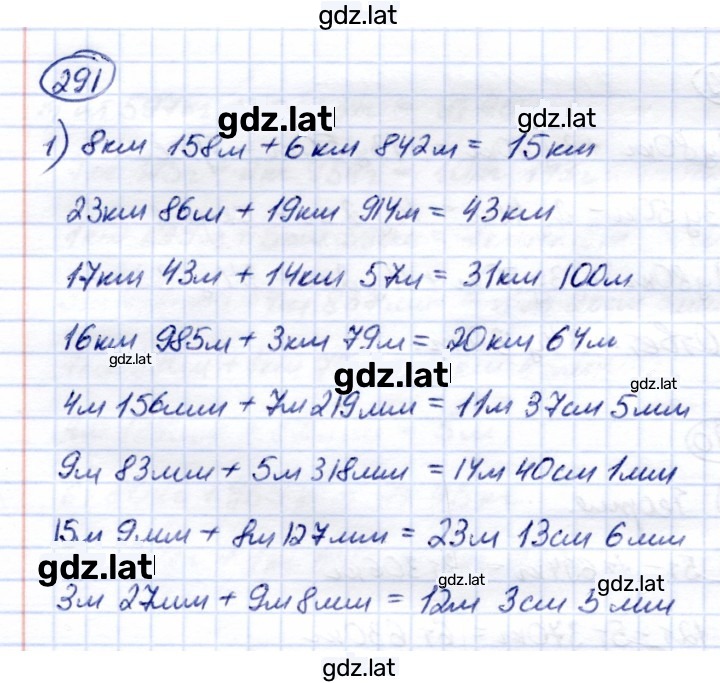 gdz.lat
291
gdz.lat gdz.lat
1) 8км 158м + 6км 842м = 15км
23км 86м + 19км 914м = 43км
17км 43м + 14км 57м = 31км 100м
16км 985м + 3км 79м = 20км 64м
gdz.lat gdz.lat gdz.lat
4м 156мм + 7м 219мм = 11м 37см 5мм
9м 83мм + 5м 318мм = 14м 40см 1мм
15м 9мм + 8м 127мм = 23м 13см 6мм
gdz.lat gdz.lat gdz.lat
3м 27мм + 9м 8мм = 12м 3см 5мм
gdz.lat